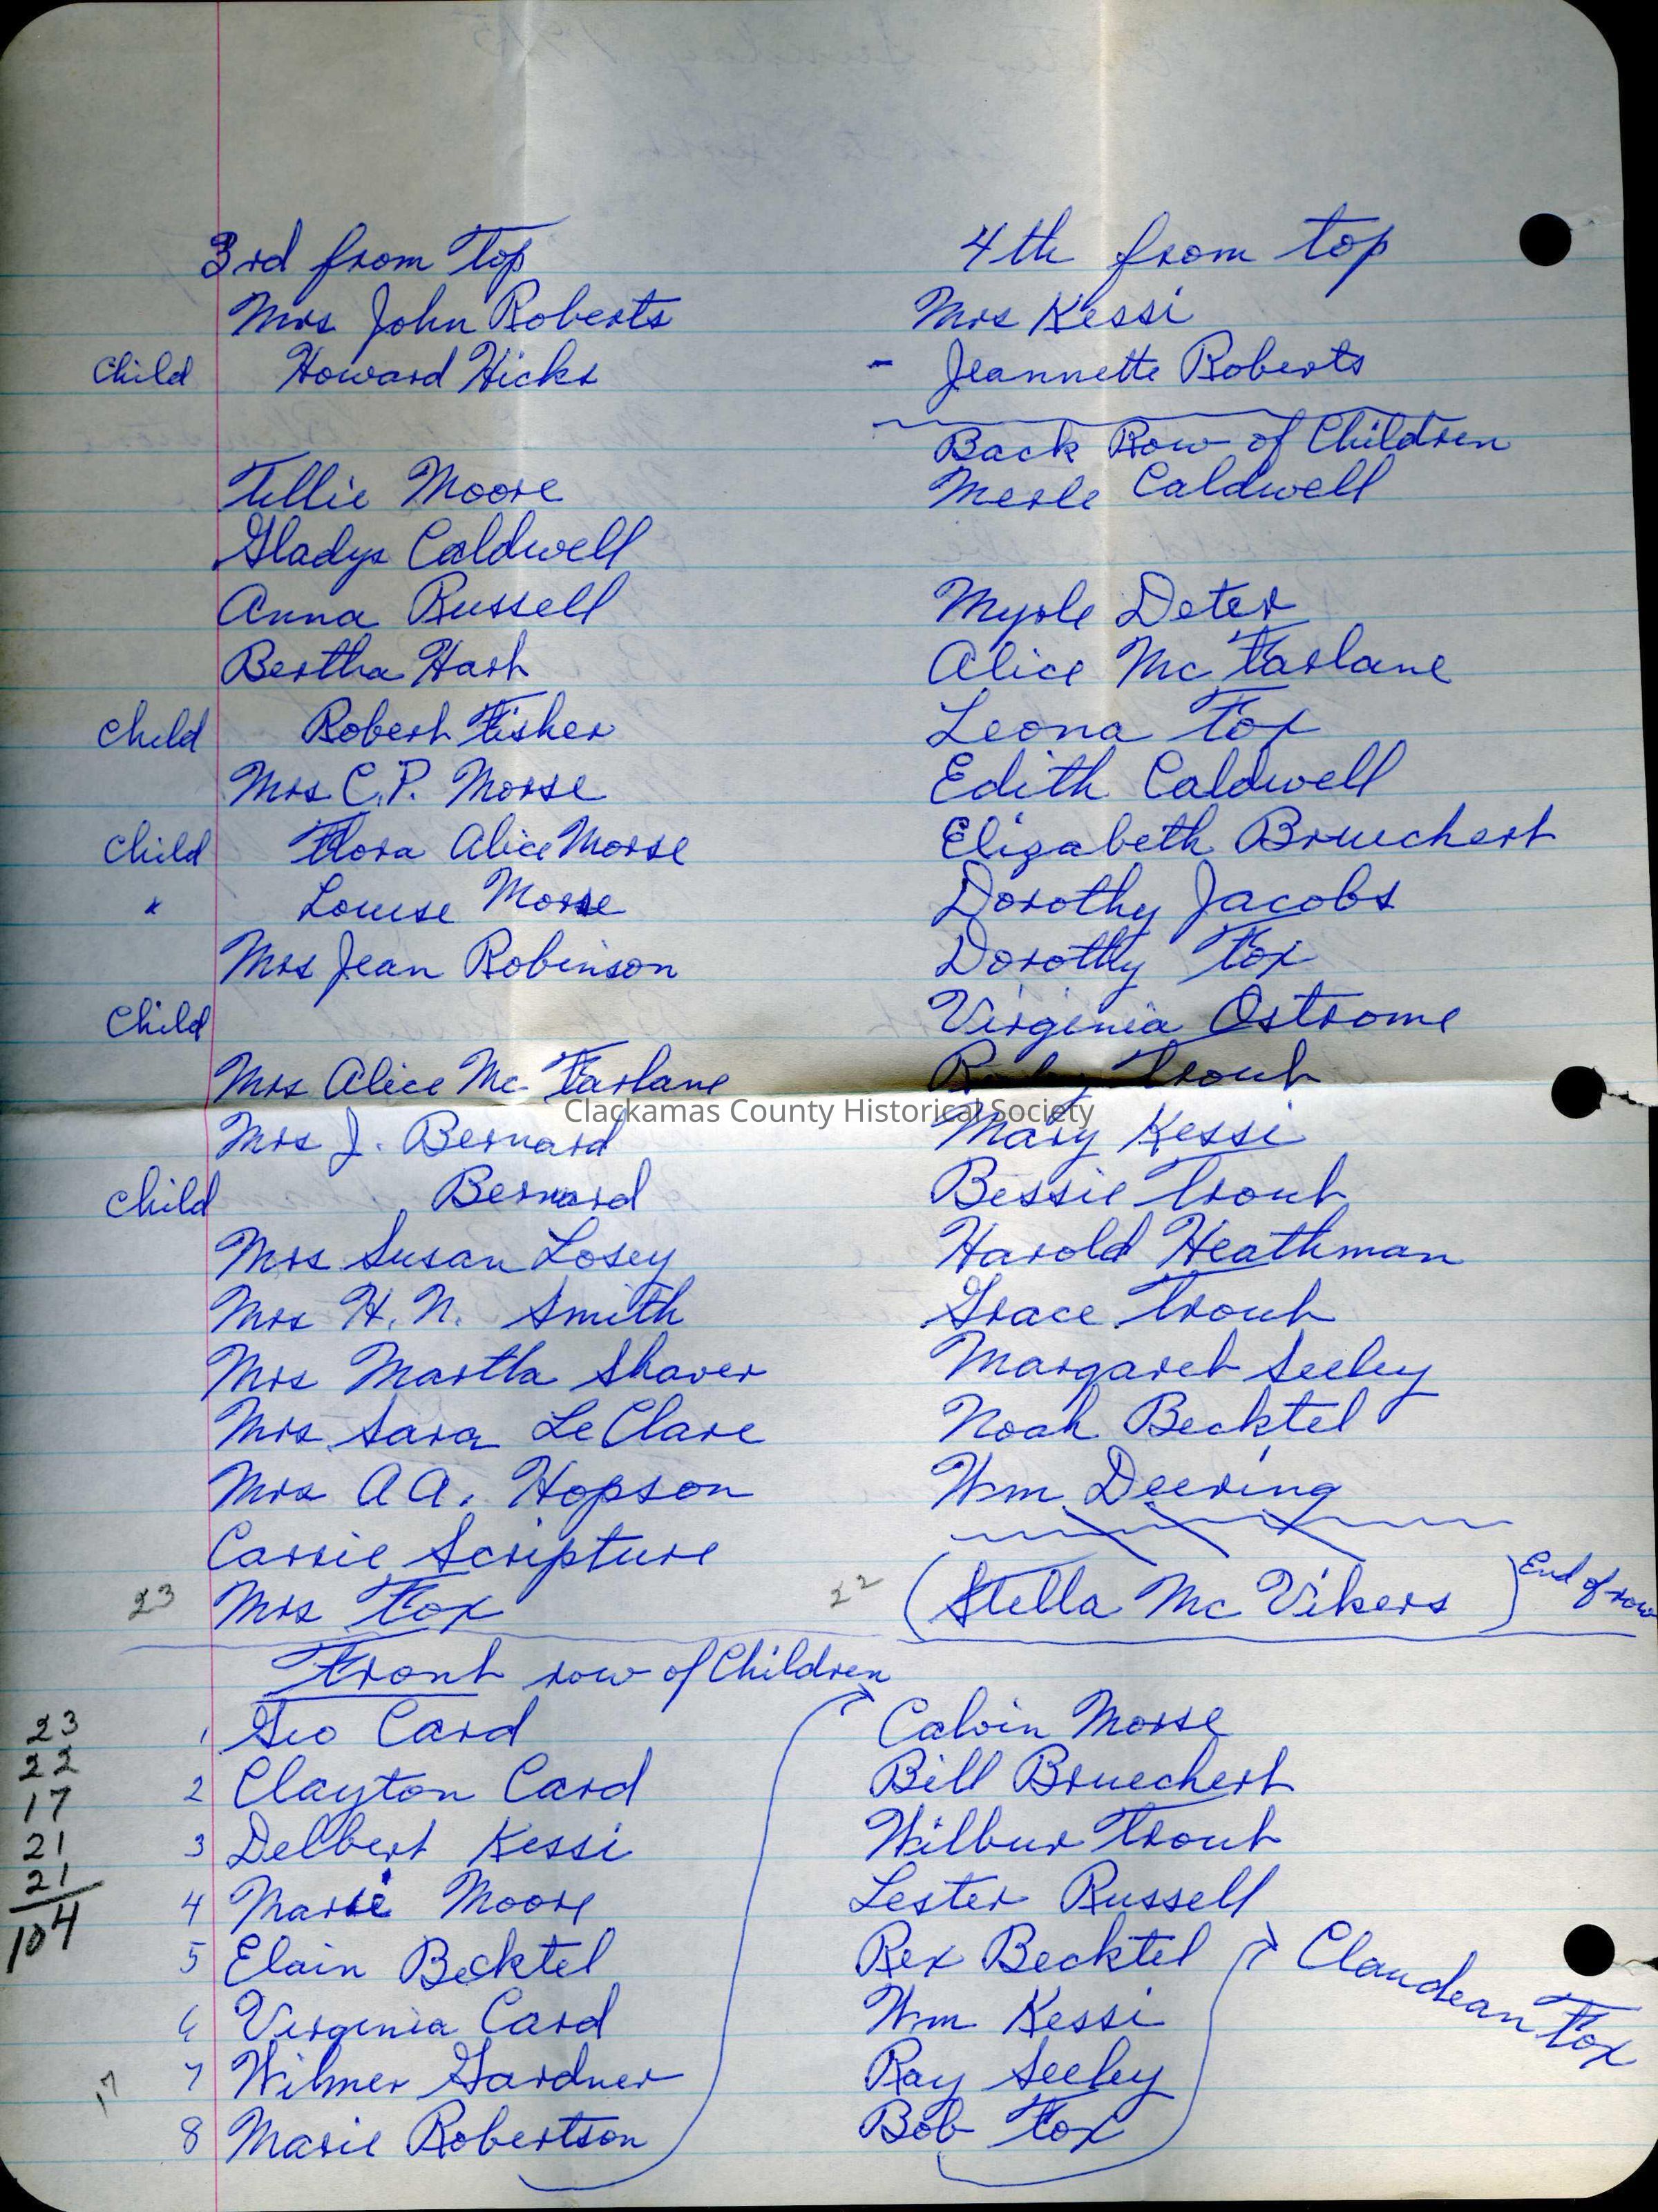 3rd from Top
Mrs John Roberts
Child Howard Hicks
Tillie Moore
Gladys Caldwell
Anna Russell
Bertha Hart
Child Robert Fisher
Mrs C.P. Morse
Child Flora Alice Morse
" Louise Morse
Mrs Jean Robinson
Child
Mrs Alice Mc Farlane
Mrs J. Bernard
Child Bernard
Mrs Susan Losey
Mrs H. N. Smith
Mrs Martha Shaver
Mrs Sara LeClare
Mrs A A. Hopson
Carrie Scripture
23 Mrs Fox
4th from top
Mrs Kessi
- Jeannette Roberts
Back Row of Children
Merle Caldwell
Myrle Deter
Alice Mc Farlane
Leona Fox
Edith Caldwell
Elizabeth Bruechert
Dorothy Jacobs
Dorothy Fox
Virginia Ostrome
Ruby Trout
Mary Kessi
Bessie Trout
Harold Heathman
Grace Trout
Margaret Seeley
Noah Becktel
Wm Deering
22 (Stella Mc Vikers) End of row
Front row of Children
1 Geo Card
2 Clayton Card
3 Delbert Kessi
4 Marie Moore
5 Elain Becktel
6 Virginia Card
7 Wilmer Gardner
8 Marie Robertson
17
Calvin Morse
Bill Bruechert
Wilbur Trout
Lester Russell
Rex Becktel
Wm Kessi
Ray Seeley
Bob Fox
Claudean Fox
23
22
17
21
21
104
Clackamas County Historical Society